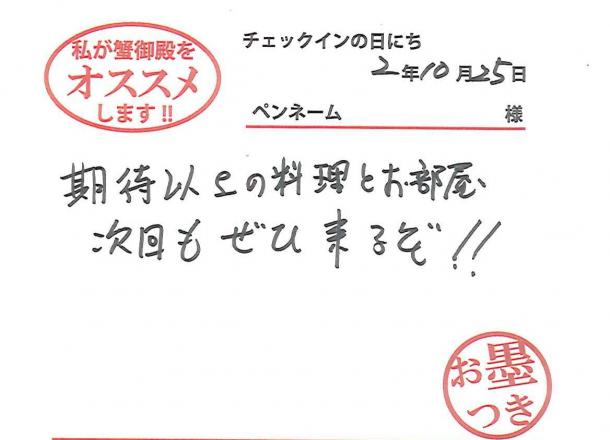 私が蟹御殿を
オススメ
します!!
チェックインの日にち
2年10月25日
ペンネーム 様
期待以上の料理とお部屋
次回もぜひ来るぞ!!
お墨
つき